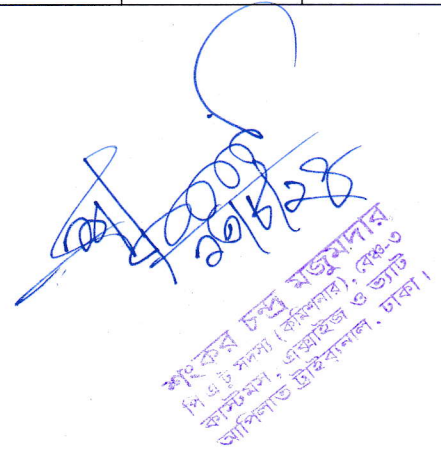 ২৩/৮/২৪
শংকর চন্দ্র মজুমদার
পি এ টু সদস্য (কমিশনার), বেঞ্চ-৩
কাস্টমস, এক্সাইজ ও ভ্যাট
আপিলাত ট্রাইব্যুনাল, ঢাকা।